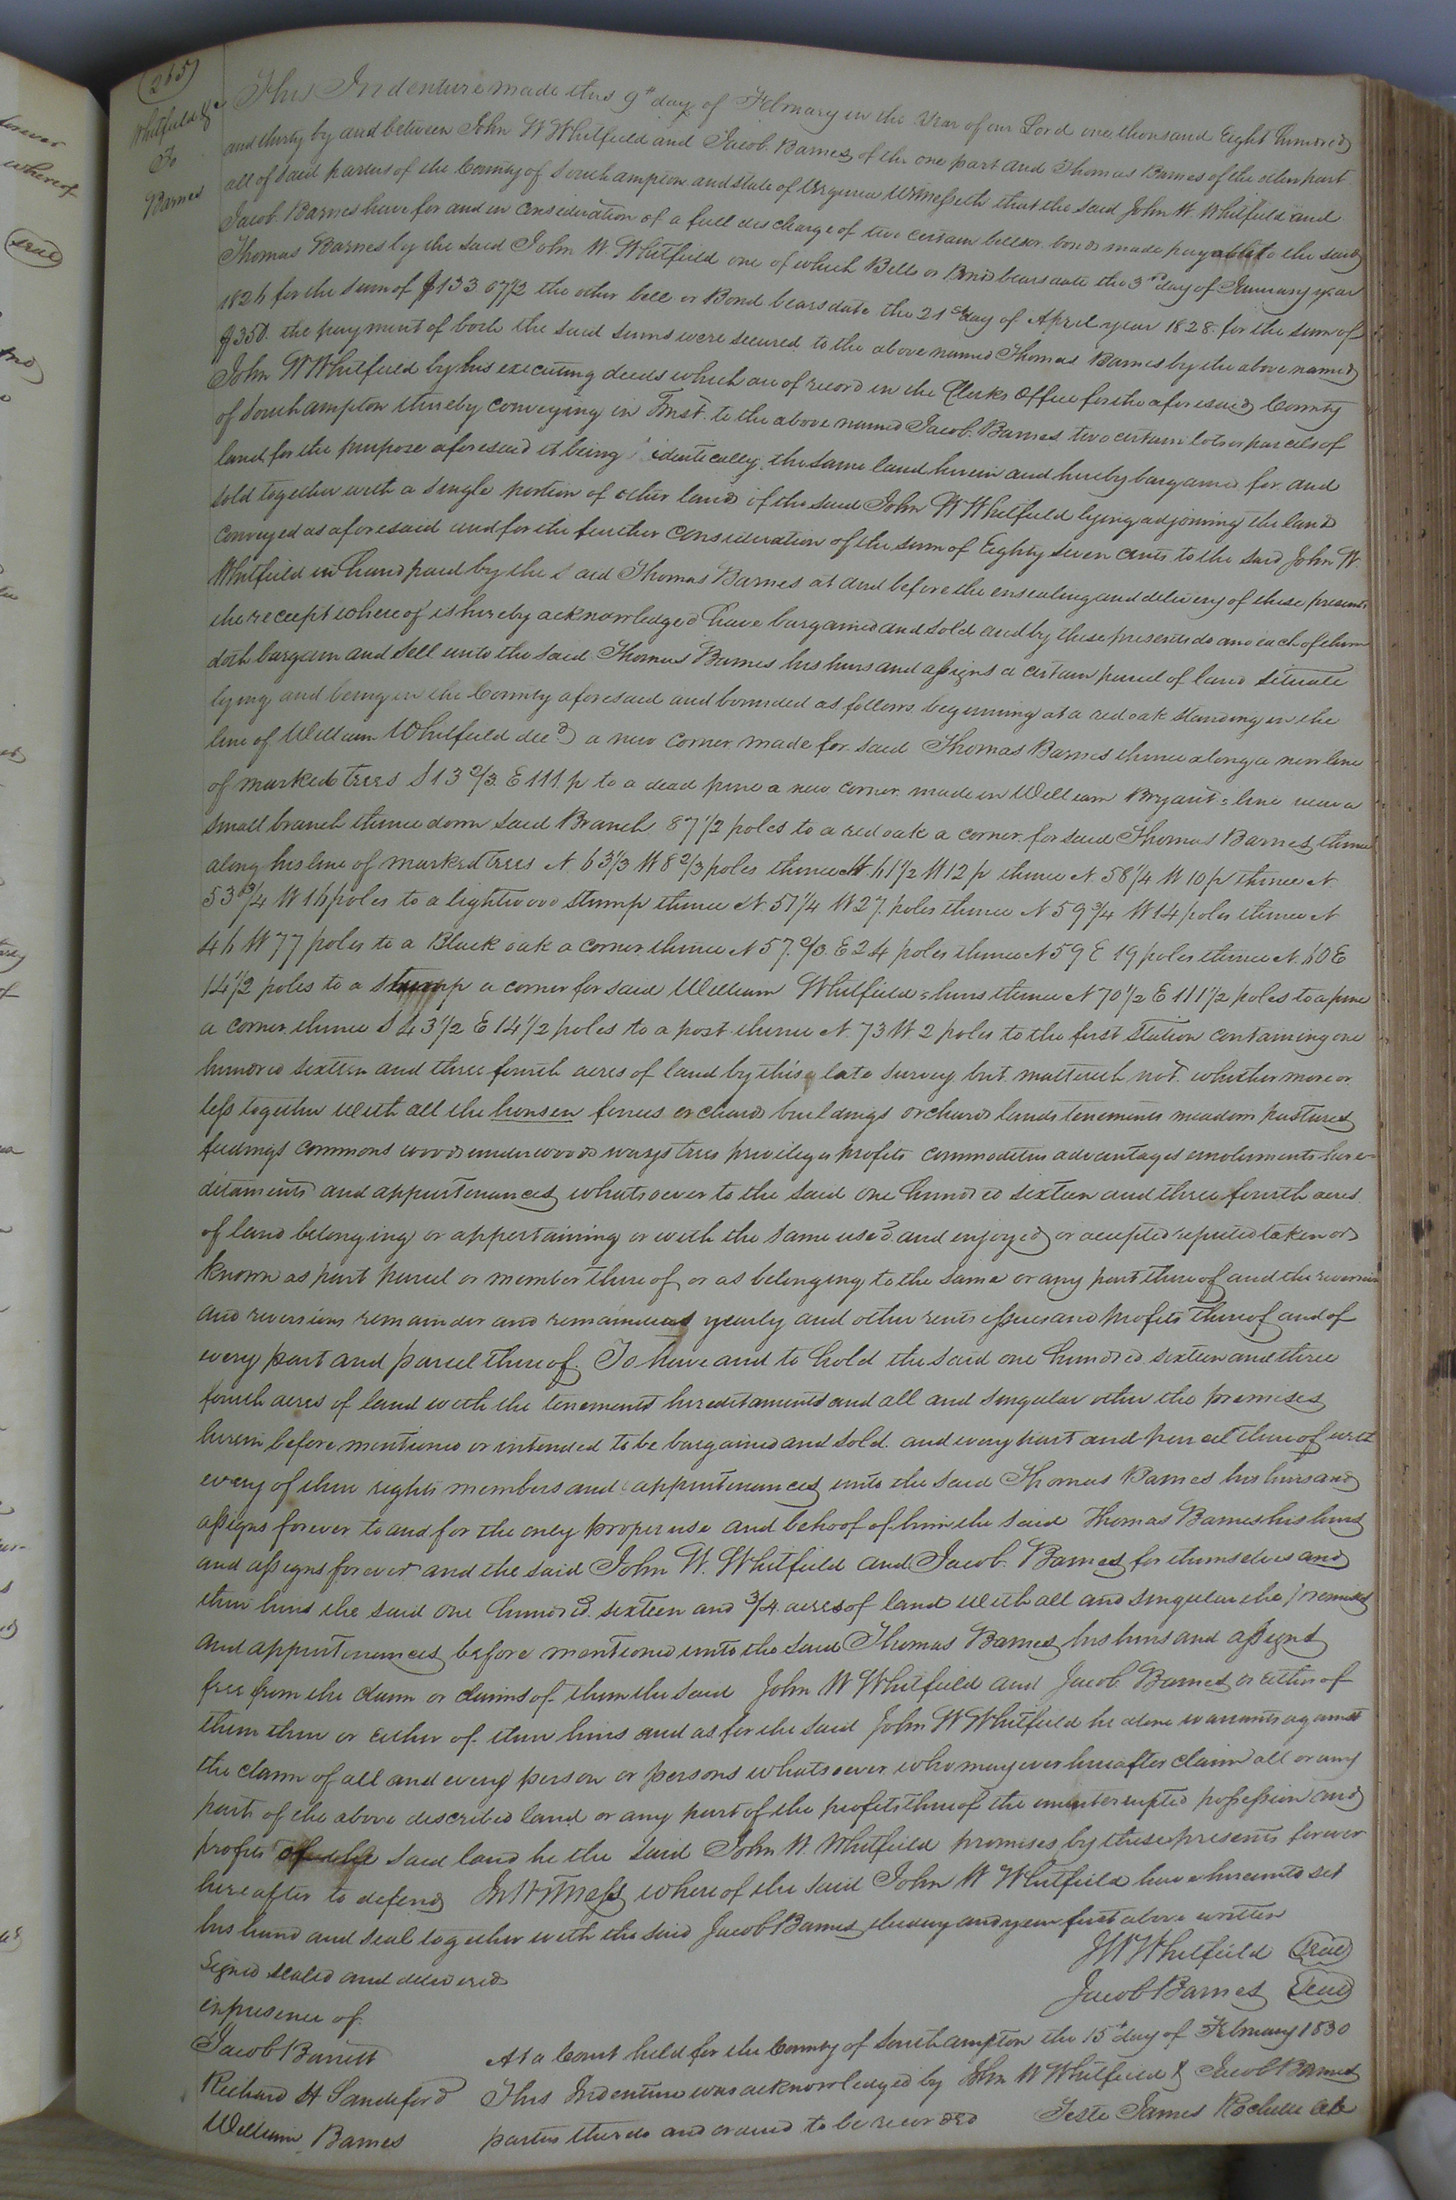 (265)
Whitfield &c
To
Barnes
This Indenture made this 9th day of February in the Year of our Lord one thousand Eight hundred
and thirty by and between John W Whitfield and Jacob Barnes of the one part and Thomas Barnes of the other part
all of said parties of the County of Southampton and state of Virginia Witnesseth that the said John W. Whitfield and
Jacob Barnes have for and in consideration of a full discharge of two certain bills or bonds made payable to the said
Thomas Barnes by the said John W Whitfield one of which Bills or Bond bears date the 3rd day of January year
1826 for the sum of $133 07 1/2 the other bill or Bond bears date the 21st day of April year 1828 for the sum of
$350. the payment of both the said sums were secured to the above named Thomas Barnes by the above named
John W Whitfield by his executing deeds which are of record in the Clerks Office for the aforesaid County
of Southampton thereby conveying in Trust to the above named Jacob Barnes two certain lots or parcels of
land for the purpose aforesaid it being identically the same land herein and hereby bargained for and
sold together with a single portion of other land of the said John W Whitfield lying adjoining the land
conveyed as aforesaid and for the further consideration of the sum of Eighty seven cents to the said John W.
Whitfield in hand paid by the said Thomas Barnes at and before the ensealing and delivery of these presents
the receipt whereof is hereby acknowledged have bargained and sold and by these presents do and each of them
doth bargain and sell unto the said Thomas Barnes his heirs and assigns a certain parcel of land situate
lying and being in the County aforesaid and bounded as follows beginning at a red oak standing in the
line of William Whitfield decd a new corner made for said Thomas Barnes thence along a new line
of marked trees S 13 2/3 E 111 p to a dead pine a new corner made in William Bryant's line near a
small branch thence down said Branch 87 1/2 poles to a red oak a corner for said Thomas Barnes thence
along his line of marked trees N 63 1/3 W 8 2/3 poles thence N 61 1/2 W 12 p thence N. 58 1/4 W 10 p thence N.
53 3/4 W 16 poles to a lightwood stump thence N. 51 1/4 W 27 poles thence N 59 3/4 W 14 poles thence N
46 W 77 poles to a Black oak a corner thence N 57 2/3 E 24 poles thence N 59 E 19 poles thence N. 60 E
14 1/2 poles to a stump a corner for said William Whitfield's heirs thence N 70 1/2 E 111 1/2 poles to a pine
a corner thence S 43 1/2 E 14 1/2 poles to a post thence N. 73 W. 2 poles to the first station containing one
hundred sixteen and three fourth acres of land by this late survey but mattereth not whether more or
less together with all the housen fences orchard buildings orchard lands tenements meadows pastured
feedings commons woods underwoods ways trees privileges profits commodities advantages emoluments here-
ditaments and appurtenances whatsoever to the said one hundred sixteen and three fourth acres
of land belonging or appertaining or with the same used and enjoyed or accepted reputed taken or
known as part parcel or member thereof or as belonging to the same or any part thereof and the reversion
and reversions remainder and remainders yearly and other rents issues and profits thereof and of
every part and parcel thereof. To have and to hold the said one hundred sixteen and three
fourth acres of land with the tenements hereditaments and all and singular other the premises
herein before mentioned or intended to be bargained and sold and every part and parcel thereof with
every of their rights members and appurtenances unto the said Thomas Barnes his heirs and
assigns forever to and for the only proper use and behoof of him the said Thomas Barnes his heirs
and assigns forever and the said John W. Whitfield and Jacob Barnes for themselves and
their heirs the said one hundred sixteen and 3/4 acres of land with all and singular the premises
and appurtenances before mentioned unto the said Thomas Barnes his heirs and assigns
free from the claim or claims of them the said John W Whitfield and Jacob Barnes or either of
them their or either of their heirs and as for the said John W Whitfield he alone warrants against
the claim of all and every person or persons whatsoever who may ever hereafter claim all or any
part of the above described land or any part of the profits thereof the uninterrupted possession and
profits of the said land he the said John W. Whitfield promises by these presents forever
hereafter to defend In Witness whereof the said John W Whitfield have hereunto set
his hand and seal together with the said Jacob Barnes the day and year first above written
JW Whitfield (Seal)
Signed sealed and delivered
Jacob Barnes (Seal)
in presence of
Jacob Barrett
Richard H Sandeford
William Barnes
At a Court held for the County of Southampton the 15th day of February 1830
This Indenture was acknowledged by John W Whitfield & Jacob Barnes
parties thereto and ordered to be recorded
Teste James Rochelle Clk